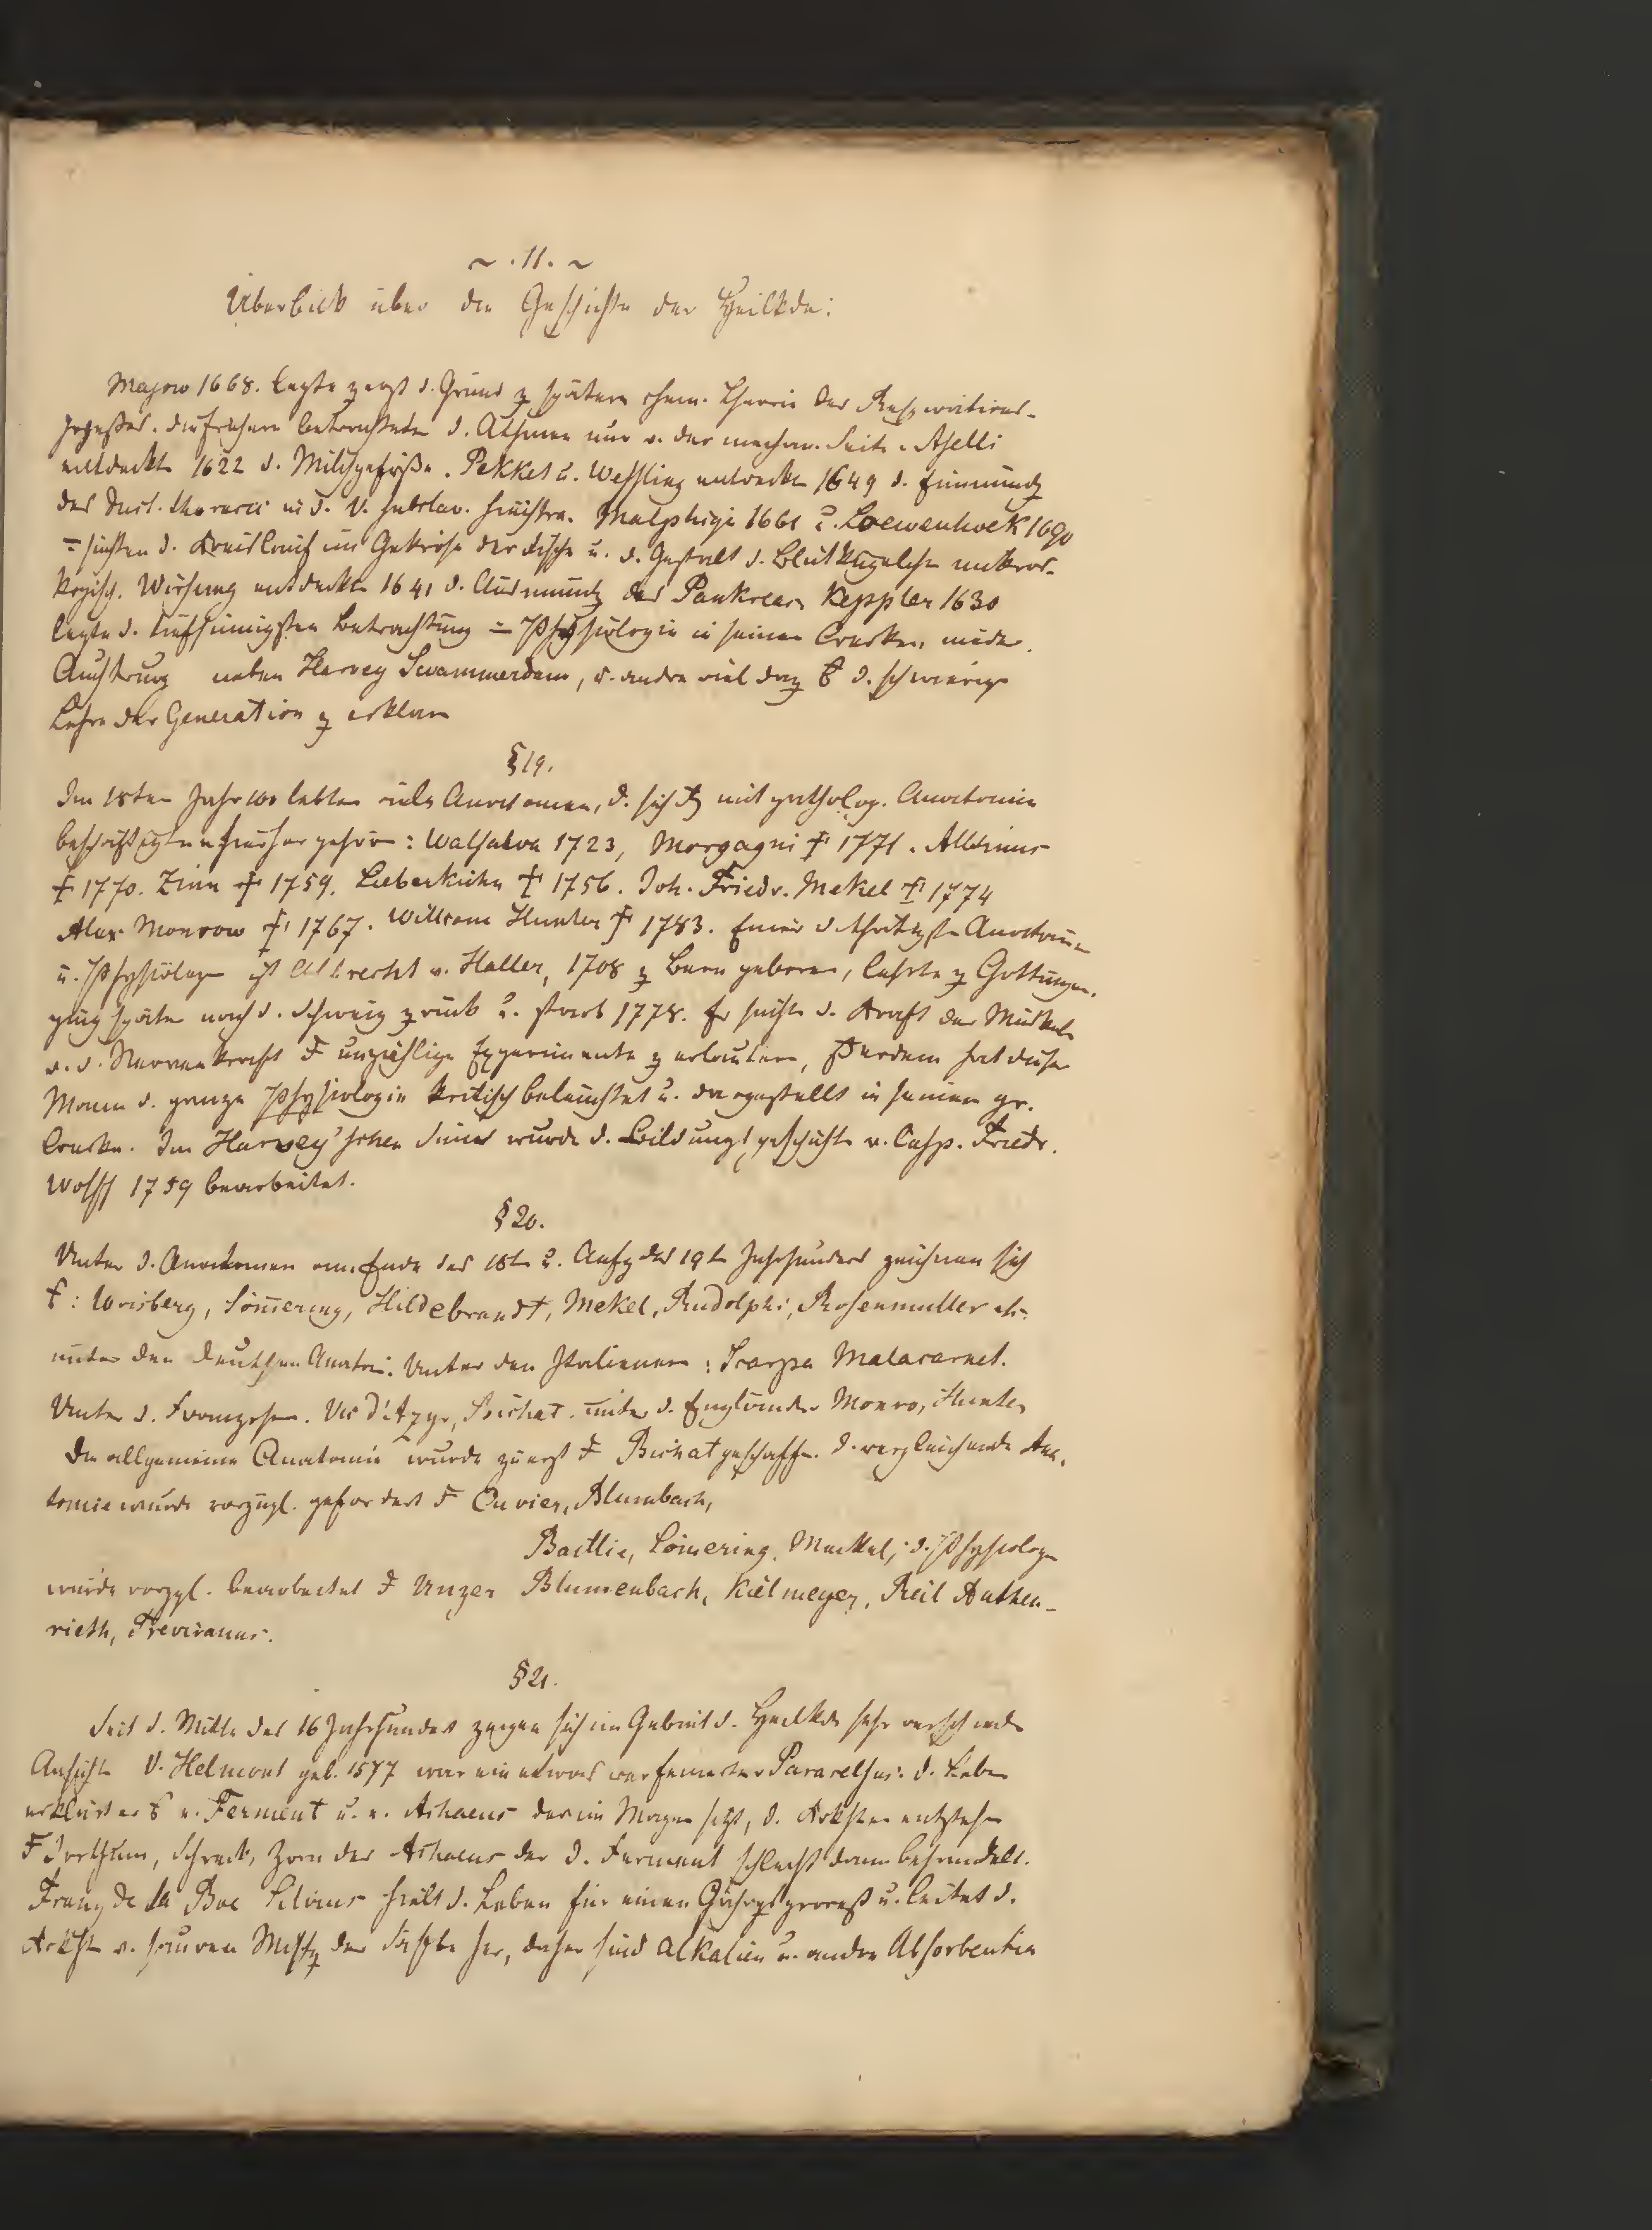 ~ . 11. ~
Überblick über die Geschichte der Heilkde:
Majow 1668. legte z erst d. Grund z spätern chem. Theorie des Respirations-
prozesses. die frühern betrachteten d. Athmen nur v. der mechan. Seite. Aselli
entdeckte 1622 d. Milchgefäße. Pekket u. Wessling entdeckte 1649 d. Einmündg
des Duct. thoracic in d. V. subclav. sinistra. Malphigi 1661 u. Loewenhoek 1690
suchten d. Kreislauf im Gekröse der Fische u. d. Gestalt d. Blutkügelchen mikros-
kopisch. Wirsung entdeckte 1641 d. Ausmündg des Pankreas Keppler 1630
legte d. tiefsinnigsten Betrachtung Physiologie in seinen Werken nieder.
neben Harvey Swammerdam, u. andre viel daz d. schwierige
Lehre der Generation z erklären
§ 19.
Im 18ten Jahr 100 lebten viele Anatomen, d. sich mit patholog. Anatomie
beschäftigten hierher gehören: Walsalva 1723, Morgagni † 1771. Albinus
† 1770. Zinn † 1759. Lieberkühn † 1756. Joh. Friedr. Mekel † 1774
Alex Monrow † 1767. William Hunter † 1783. Einer d thätigste Anatom
u. Physiologe ist Albrecht v. Haller, 1708 z Bern geboren, lehrte z Gottingen.
ging später nach d. Schweiz zrück u. starb 1778. Er suchte d. Kraft der Muskeln
u. d. Nervenkraft unzählige Experimente z erläutern, ßerdem hat dieser
Mann d. ganze Physiologie kritisch beleuchtet u. dargestellt in seinen gr.
Werke. Im Harvey'schen Sinne wurde d. Bildungsgeschichte v. Casp. Friedr.
Wolff 1759 bearbeitet.
§ 20.
Unter d. Anatomen am Ende des 18t u. Anfg des 19t Jahrhundert zeichnen sich
: Wrisberg, Sömmering, Hildebrandt, Mekel, Rudolphi, Rosenmuller etc.
unter den deutschen Anatom. Unter den Italienern: Scarpa Malacarnet.
Unter d. Franzosen. Vic d'Azyr, Bichat. unter d. Engländer Monro, Hunter
Die allgemeine Anatomie wurde zuerst Bichat geschaffe. d. vergleichende Ana-
tomie wurde vorzügl. gefordert Cuvier, Blumbach,
Baillie, Sömering, Meckel, d. Physiologe
wurde vorzgl. bearbeitet Unzer Blumenbach, Kielmeyer, Reil Authen-
rieth, Treviranus.
§ 21.
Seit d. Mitte des 16 Jahrhundert zeigen sich im Gebiet d. Heilkde sehr verschiede
Ansichte V. Helmont geb. 1577 war ein etwas verfeinerter Paracelsus: d. Leben
erklärt er v. Ferment u. v. Achaeus der im Magen sitzt, d. Arkhten entstehe
Irrthum, Schreck, Zorn des Achaeus der d. Ferment schlecht dann behandelt.
Franz de la Boe Silvius hielt d. Leben für einen Gährgsproceß u. leitet d.
v. sauren Mischg der Säfte her, daher sind Alkalien u. andre Absorbentia